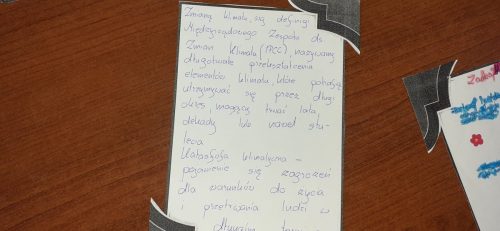 Zmianą klimatu, wg definicji
Międzyrządowego Zespołu ds.
Zmian Klimatu (IPCC), nazywamy
długotrwałe przekształcenia
elementów klimatu, które potrafią
utrzymywać się przez długi
okres, mogący trwać lata,
dekady lub nawet stu-
lecia
Katastrofa klimatyczna -
pojawienie się zagrożeń
dla warunków do życia
i przetrwania ludzi w